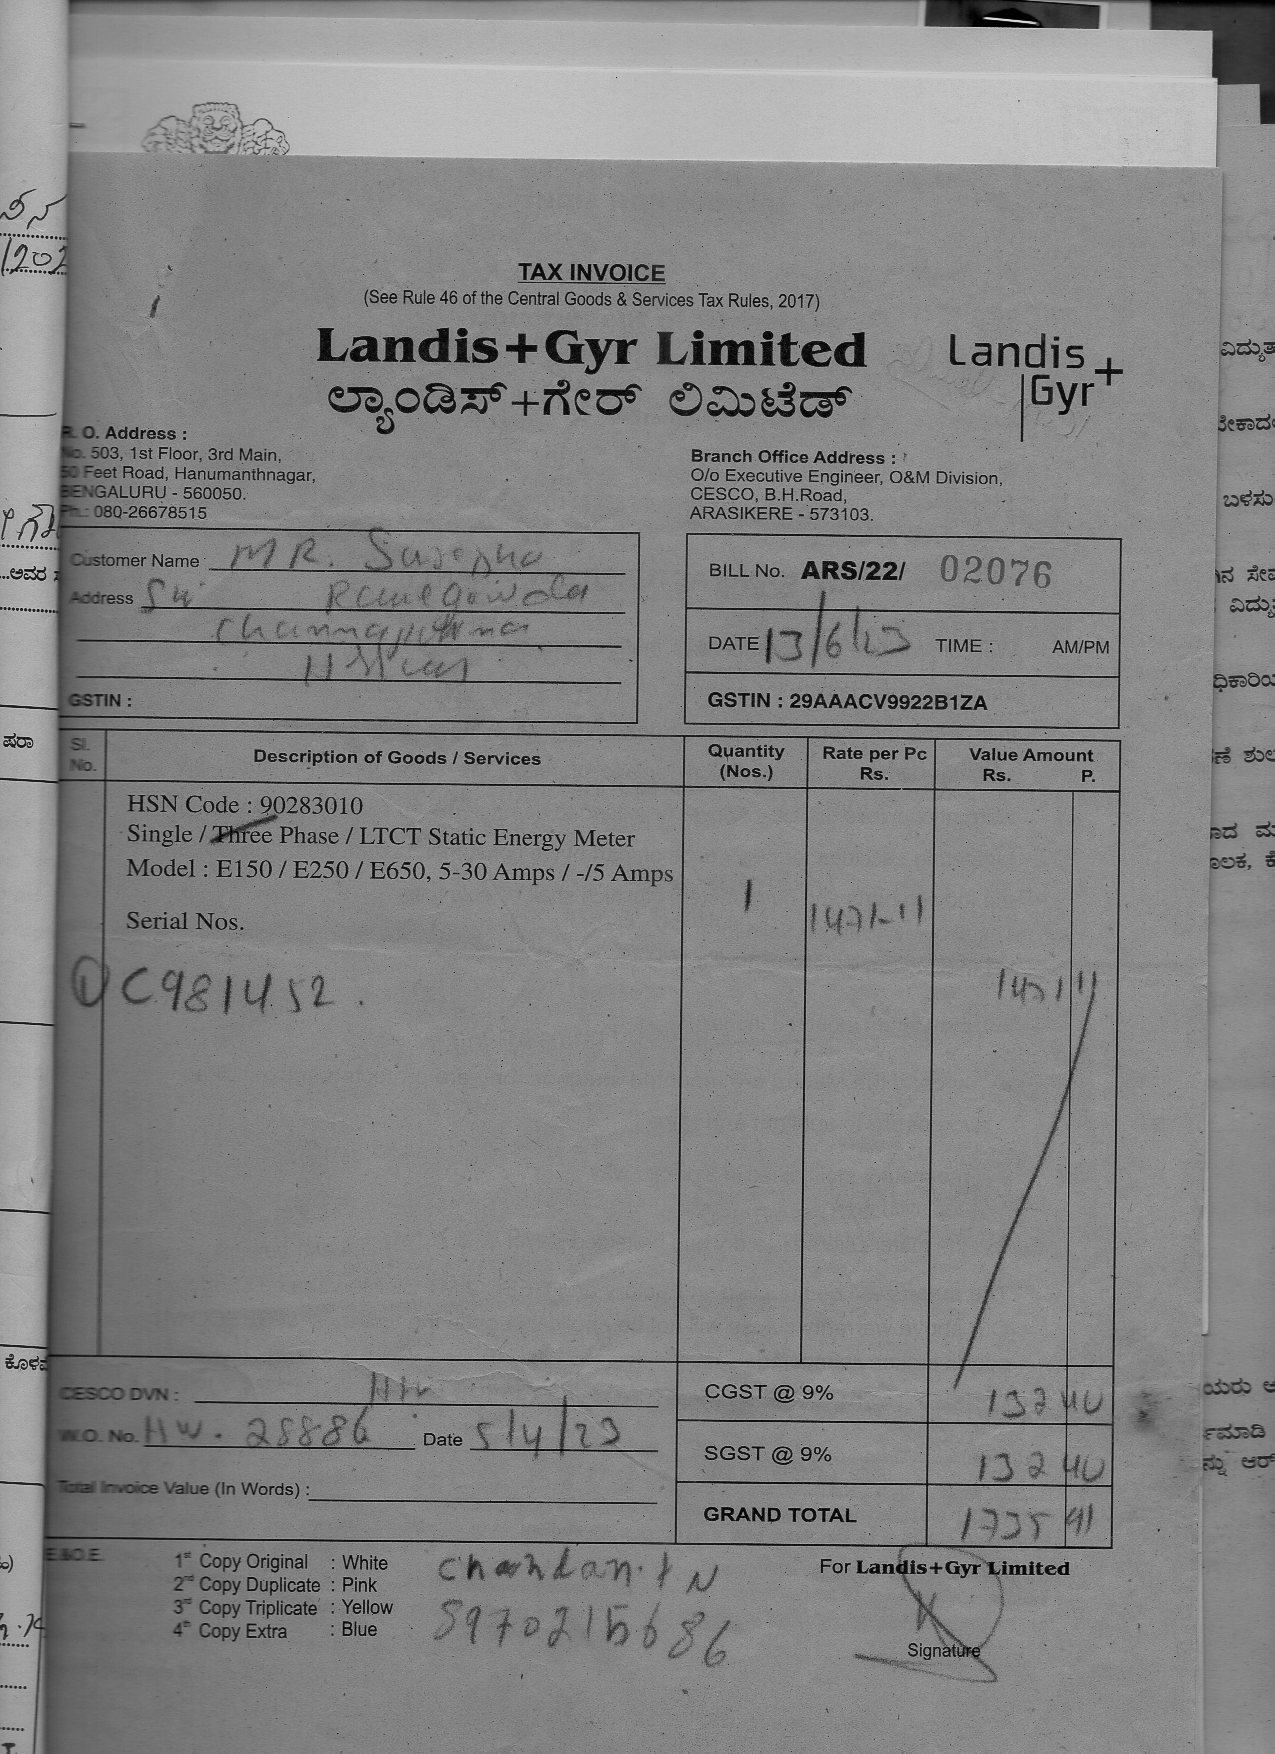 TAX INVOICE
(See Rule 46 of the Central Goods & Services Tax Rules, 2017)
Landis+Gyr Limited
ಲ್ಯಾಂಡಿಸ್+ಗೇರ್ ಲಿಮಿಟೆಡ್
Landis+
Gyr
R. O. Address :
No. 503, 1st Floor, 3rd Main,
50 Feet Road, Hanumanthnagar,
BENGALURU - 560050.
Ph.: 080-26678515
Branch Office Address :
O/o Executive Engineer, O&M Division,
CESCO, B.H.Road,
ARASIKERE - 573103.
Customer Name : MR.
Address
GSTIN :
BILL No. ARS/22/ 02076
DATE 13/6/23 TIME : AM/PM
GSTIN : 29AAACV9922B1ZA
Sl. No. Description of Goods / Services Quantity (Nos.) Rate per Pc Rs. Value Amount Rs. P.
HSN Code : 90283010
Single / Three Phase / LTCT Static Energy Meter
Model : E150 / E250 / E650, 5-30 Amps / -/5 Amps
1 1471-11
Serial Nos.
① C981452. 1471 11
CESCO DVN :
CGST @ 9% 132 40
W.O. No. HW. 28886 Date 5/4/23
SGST @ 9% 132 40
Total Invoice Value (In Words) :
GRAND TOTAL 1735 91
E.&O.E.
1st Copy Original : White
2nd Copy Duplicate : Pink
3rd Copy Triplicate : Yellow
4th Copy Extra : Blue
Chandan.
For Landis+Gyr Limited
Signature